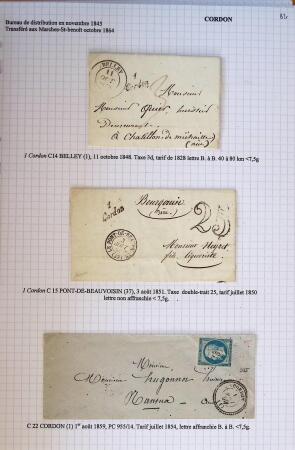 Bureau de distribution en novembre 1845
Transféré aux Marches-St-benoît octobre 1864
CORDON
BELLEY
11
OCT
1
Cordon
Monsieur
Monsieur
à Chatillon de michaille
(ain)
1 Cordon C14 BELLEY (1), 11 octobre 1848. Taxe 3d, tarif de 1828 lettre B. à B. 40 à 80 km <7,5g
1
Cordon
Bourgouin
(Isère)
25
LE PONT-DE-BEAUVOISIN
Monsieur
1 Cordon C 15 PONT-DE-BEAUVOISIN (37), 3 août 1851. Taxe double-trait 25, tarif juillet 1850
lettre non affranchie < 7,5g.
Monsieur
Monsieur Hugonnet
Nantua
CORDON
C 22 CORDON (1) 1er août 1859, PC 955/14. Tarif juillet 1854, lettre affranchie B. à B. <7,5g.